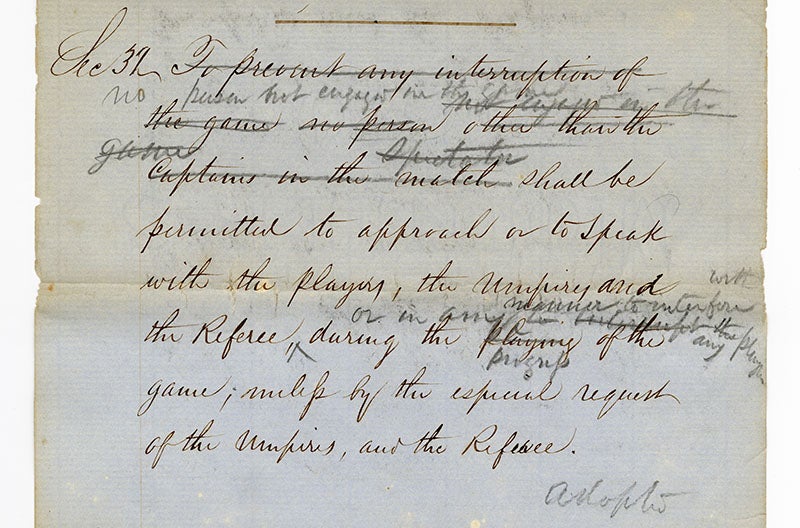 Sec 32 To prevent any interruption of
no person not engaged in the game not engaged in the
the game no person other than the
game Spectator
Captains in the match shall be
permitted to approach or to speak
with the players, the Umpires and
with
or in any manner to interfere
the Referee, during the playing of the
any the play
progress
game; unless by the especial request
of the Umpires, and the Referee.
adopted